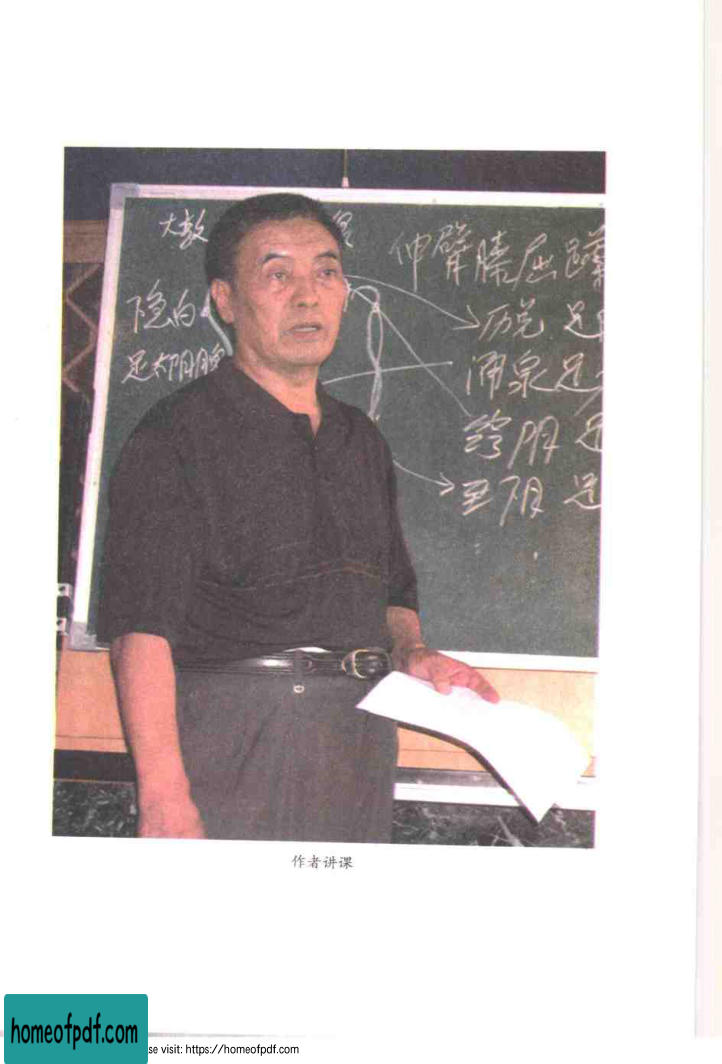 大敦
伸臂膝屈
隐白
历兑 足
足太阴脾
涌泉足
窍阴足
至阴 足
作者讲课
homeofpdf.com
se visit: https://homeofpdf.com